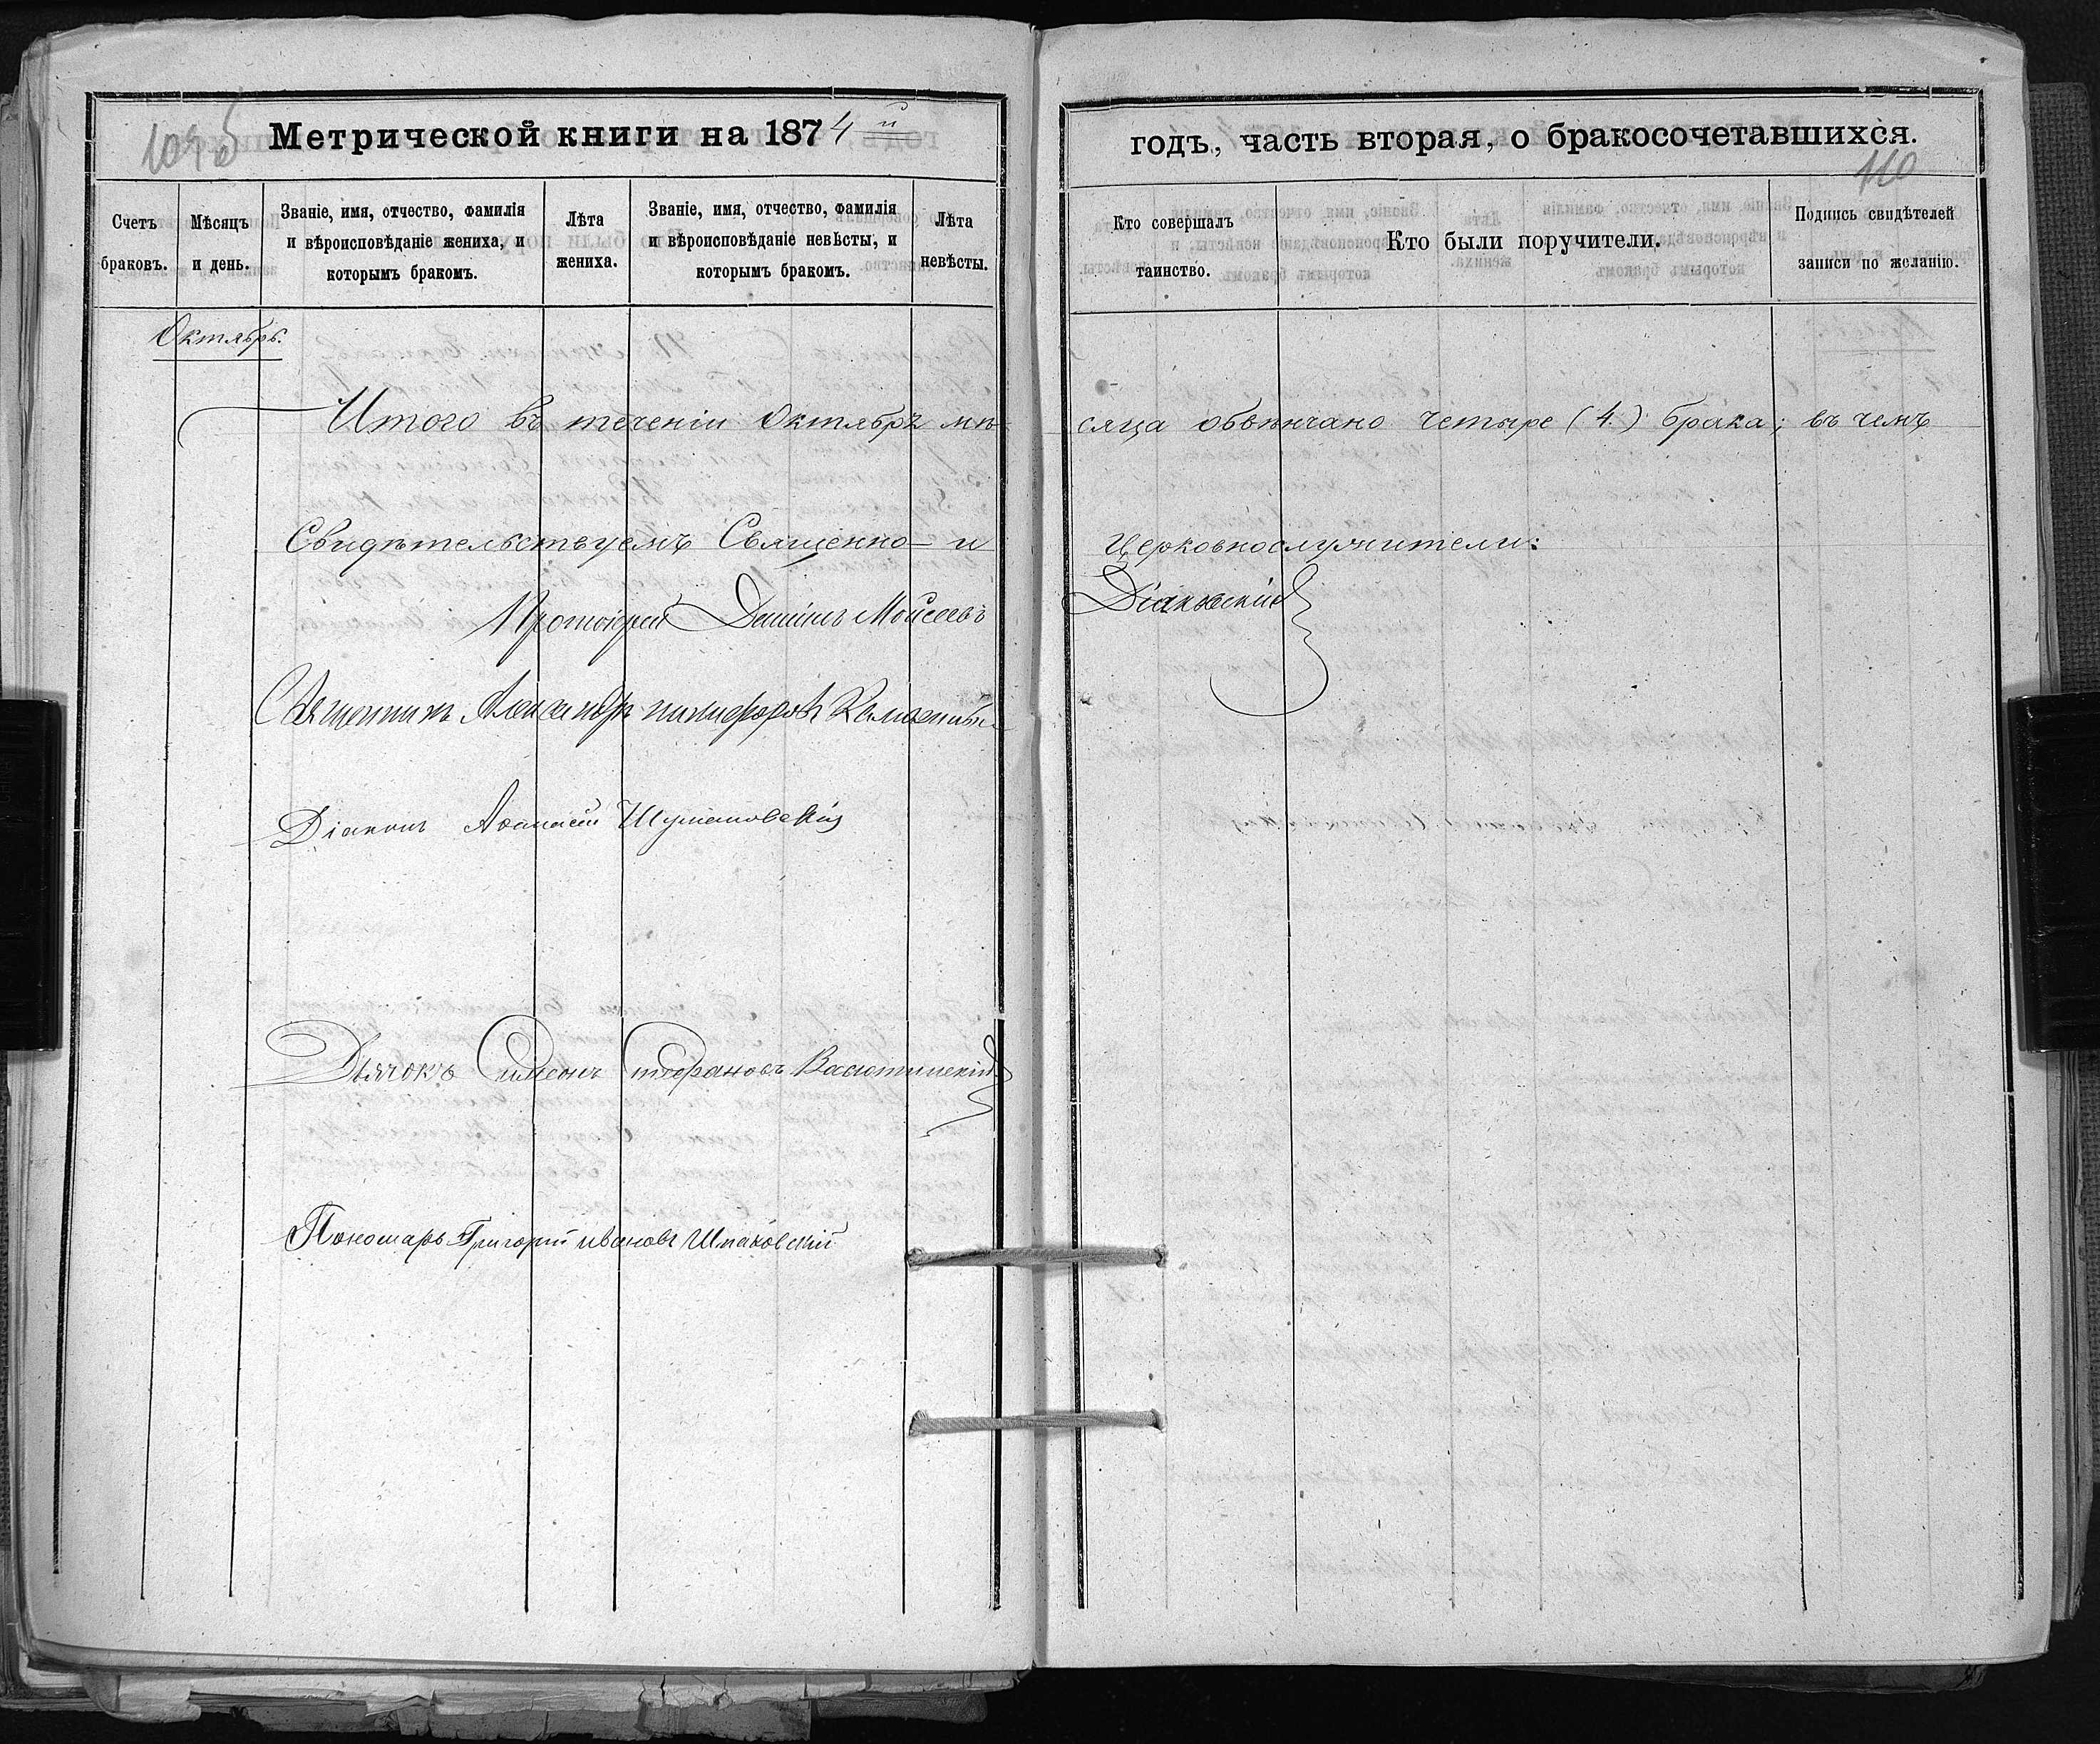 109 об
Метрической книги на 1874 й
годъ, часть вторая, о бракосочетавшихся.
110
Счетъ браковъ.
Мѣсяцъ и день.
Званіе, имя, отчество, фамилія
и вѣроисповѣданіе жениха, и
которымъ бракомъ.
Лѣта
жениха.
Званіе, имя, отчество, фамилія
и вѣроисповѣданіе невѣсты, и
которымъ бракомъ.
Лѣта
невѣсты.
Кто совершалъ
таинство.
Кто были поручители.
Подпись свидѣтелей
записи по желанію.
Октябрь.
Итого въ теченіи Октябрѣ мѣсяца обвѣнчано четыре (4.) брака; въ чемъ
Свидѣтельствуемъ Священно- и Церковнослужители:
Протоіерей Даніилъ Моѵсеевъ Діаковскій
Священникъ Александръ никифоровъ
Діаконъ Аѳанасій Шумановскій
Дьячокъ Симеонъ Стефановъ Васютинскій
Пономарь Григорій ивановъ Шпаковскій